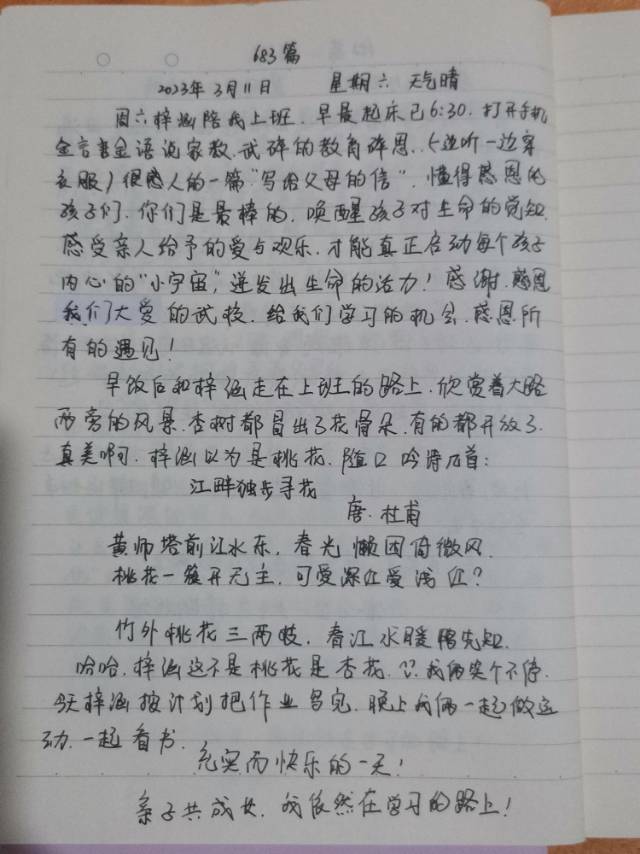 683篇
2023年3月11日 星期六 天气晴
周六梓涵陪我上班.早晨起床已6:30.打开手机
金言金语说家教.武碎的教育碎思..(边听一边穿
衣服)很感人的一篇"写给父母的信".懂得感恩的
孩子们.你们是最棒的.唤醒孩子对生命的觉知.
感受亲人给予的爱与欢乐.才能真正启动每个孩子
内心的"小宇宙",迸发出生命的活力!感谢.感恩
我们大爱的武校.给我们学习的机会.感恩所
有的遇见!
早饭后和梓涵走在上班的路上.欣赏着大路
两旁的风景.杏树都冒出了花骨朵.有的都开放了.
真美啊.梓涵以为是桃花.随口吟诗几首:
江畔独步寻花
唐.杜甫
黄师塔前江水东,春光懒困倚微风.
桃花一簇开无主,可爱深红爱浅红?
竹外桃花三两枝,春江水暖鸭先知.
哈哈.梓涵这不是桃花是杏花.我俩笑个不停.
今天梓涵按计划把作业写完.晚上我俩一起做运
动.一起看书.
充实而快乐的一天!
亲子共成长.我依然在学习的路上!